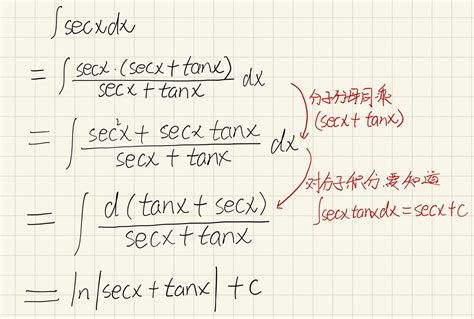 ∫secxdx
= ∫ secx·(secx+tanx) / secx+tanx dx
分子分母同乘
(secx+tanx)
= ∫ sec²x+secxtanx / secx+tanx dx
对分子积分,要知道
∫secxtanxdx=secx+c
= ∫ d(tanx+secx) / secx+tanx
= ln|secx+tanx|+c